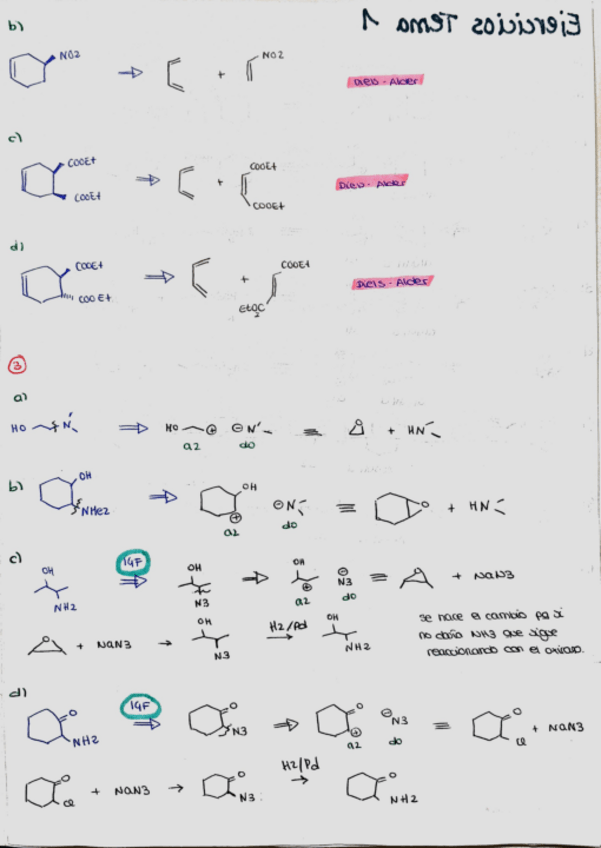 Ejercicios Tema 1
b)
NO2 ⇒ + NO2 Diels-Alder
c)
COOEt COOEt ⇒ + COOEt COOEt Diels-Alder
d)
COOEt COOEt ⇒ + COOEt EtO2C Diels-Alder
3
a)
HO N ⇒ HO ⊕ ⊖N ≡ O + HN
a2 d0
b)
OH NMe2 ⇒ OH ⊕ ⊖N ≡ O + HN
a2 d0
c)
OH NH2 IGF ⇒ OH N3 ⇒ OH ⊕ ⊖ N3 ≡ O + NaN3
a2 d0
O + NaN3 → OH N3 H2/Pd → OH NH2
se hace el cambio pq si
no daría NH3 que sigue
reaccionando con el oxirano.
d)
O NH2 IGF ⇒ O N3 ⇒ O ⊕ ⊖N3 ≡ O Cl + NaN3
a2 d0
O Cl + NaN3 → O N3 H2/Pd → O NH2